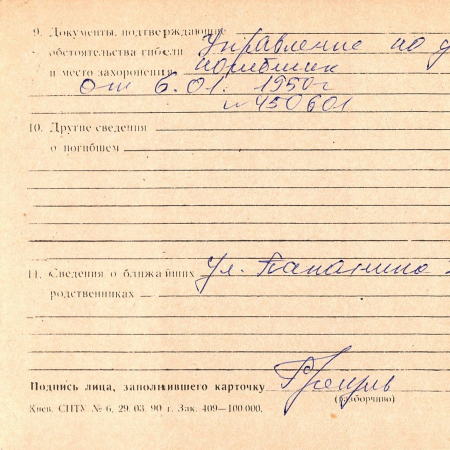 9. Документы, подтверждающие
обстоятельства гибели Управление по
и место захоронения погибших
От 6.01. 1950г
№ 450601
10. Другие сведения
о погибшем
11. Сведения о ближайших ул. Папанина
родственниках
Подпись лица, заполнившего карточку
(разборчиво)
Киев. СПТУ № 6, 29. 03. 90 г. Зак. 409—100 000.